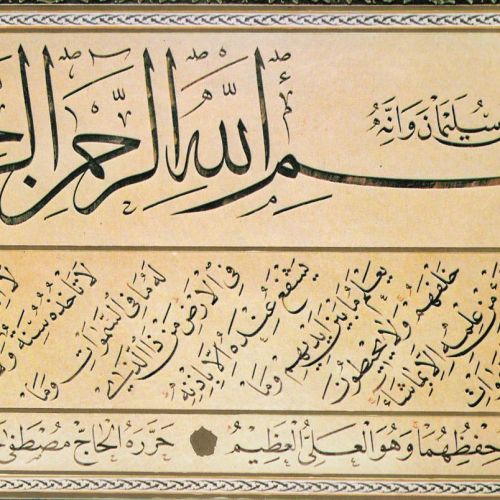 سُلَيْمَانَ وَاِنَّهُ
ـسم الله الرحمن
لَا تَأْخُذُهُ سِنَةٌ
لَهُ مَا فِي السَّمٰوَاتِ وَمَا
فِي الْاَرْضِ مَنْ ذَا الَّذِي
يَشْفَعُ عِنْدَهُ اِلَّا بِاِذْنِهِ
يَعْلَمُ مَا بَيْنَ اَيْدِيهِمْ وَمَا
خَلْفَهُمْ وَلَا يُحِيطُونَ
مِنْ عِلْمِهِ اِلَّا بِمَا شَاءَ
حِفْظُهُمَا وَهُوَ الْعَلِيُّ الْعَظِيمُ حَرَّرَهُ الْحَاجّ مُصْطَفٰى